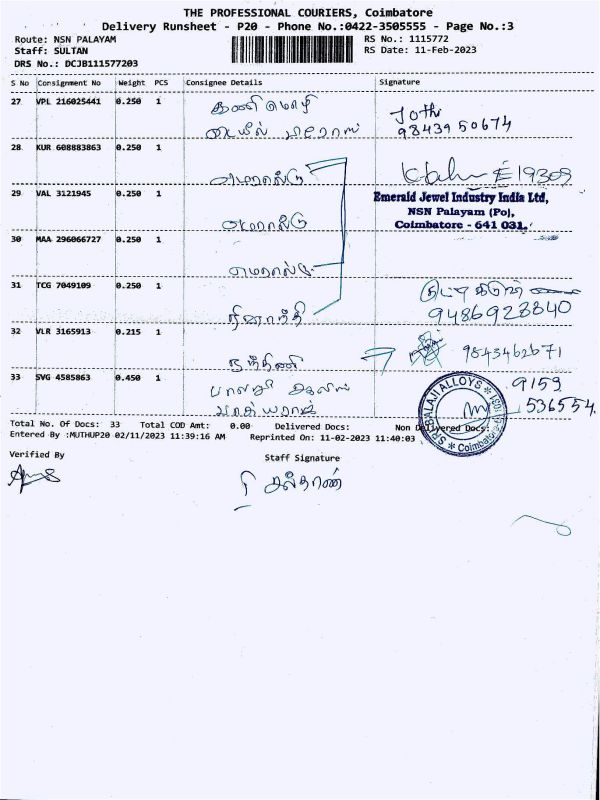 THE PROFESSIONAL COURIERS, Coimbatore
Delivery Runsheet - P20 - Phone No.:0422-3505555 - Page No.:3
Route: NSN PALAYAM
RS No.: 1115772
Staff: SULTAN
RS Date: 11-Feb-2023
DRS No.: DCJB111577203
S No Consignment No Weight PCS Consignee Details Signature
27 VPL 216025441 0.250 1 கனிமொழி Jothi
9843950674
28 KUR 608883863 0.250 1 எமரால்டு E19309
29 VAL 3121945 0.250 1 எமரால்டு
Emerald Jewel Industry India Ltd,
NSN Palayam (Po),
Coimbatore - 641 031.
30 MAA 296066727 0.250 1 எமரால்டு
31 TCG 7049109 0.250 1
9486923840
32 VLR 3165913 0.215 1 நந்தினி 9843462671
33 SVG 4585863 0.450 1 பாலாஜி அலாய்ஸ்
9159
536554
SRI BALAJI ALLOYS * Coimbatore
Total No. Of Docs: 33 Total COD Amt: 0.00 Delivered Docs: Non Delivered Docs:
Entered By :MUTHUP20 02/11/2023 11:39:16 AM Reprinted On: 11-02-2023 11:40:03
Verified By
Staff Signature
சுல்தான்